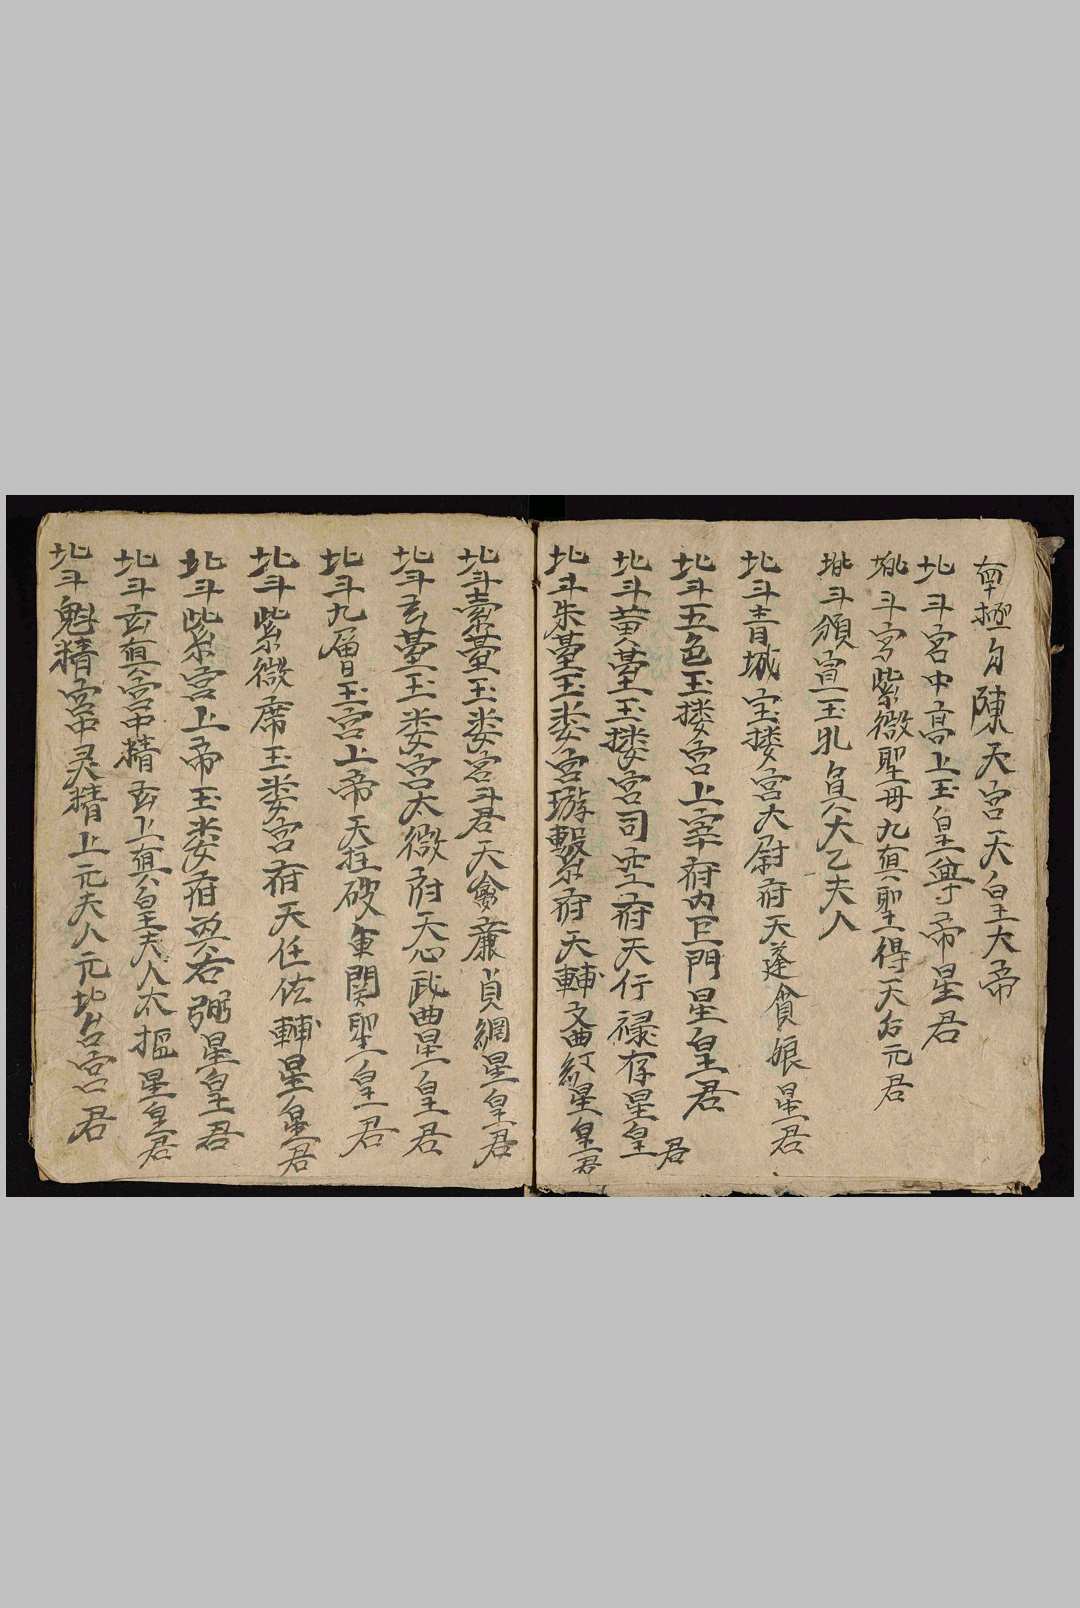 南極勾陳天宮天皇大帝
北斗宮中高上玉皇尊帝星君
北斗宮紫微聖母九真聖得天后元君
北斗頒宣玉乳真大乙夫人
北斗青城宝搂宮大尉府天蓬貪娘星君
北斗五色玉搂宮上宰府内巨門星皇君
北斗黄臺玉搂宮司空府天行禄存星皇君
北斗朱臺玉娄宮璇府天輔文曲紀星皇君
北斗素臺玉娄宮斗君天禽廉貞綱星皇君
北斗玄臺玉娄宮太微府天心武曲星皇君
北斗九層玉宮上帝天柱破軍関聖皇君
北斗紫微席玉娄宮府天任佐輔星皇君
北斗紫宮上帝玉娄府右弼星皇君
北斗玄真宮中精玄上真皇夫人太樞星皇君
北斗魁精宮中灵精上元夫人元北宮君